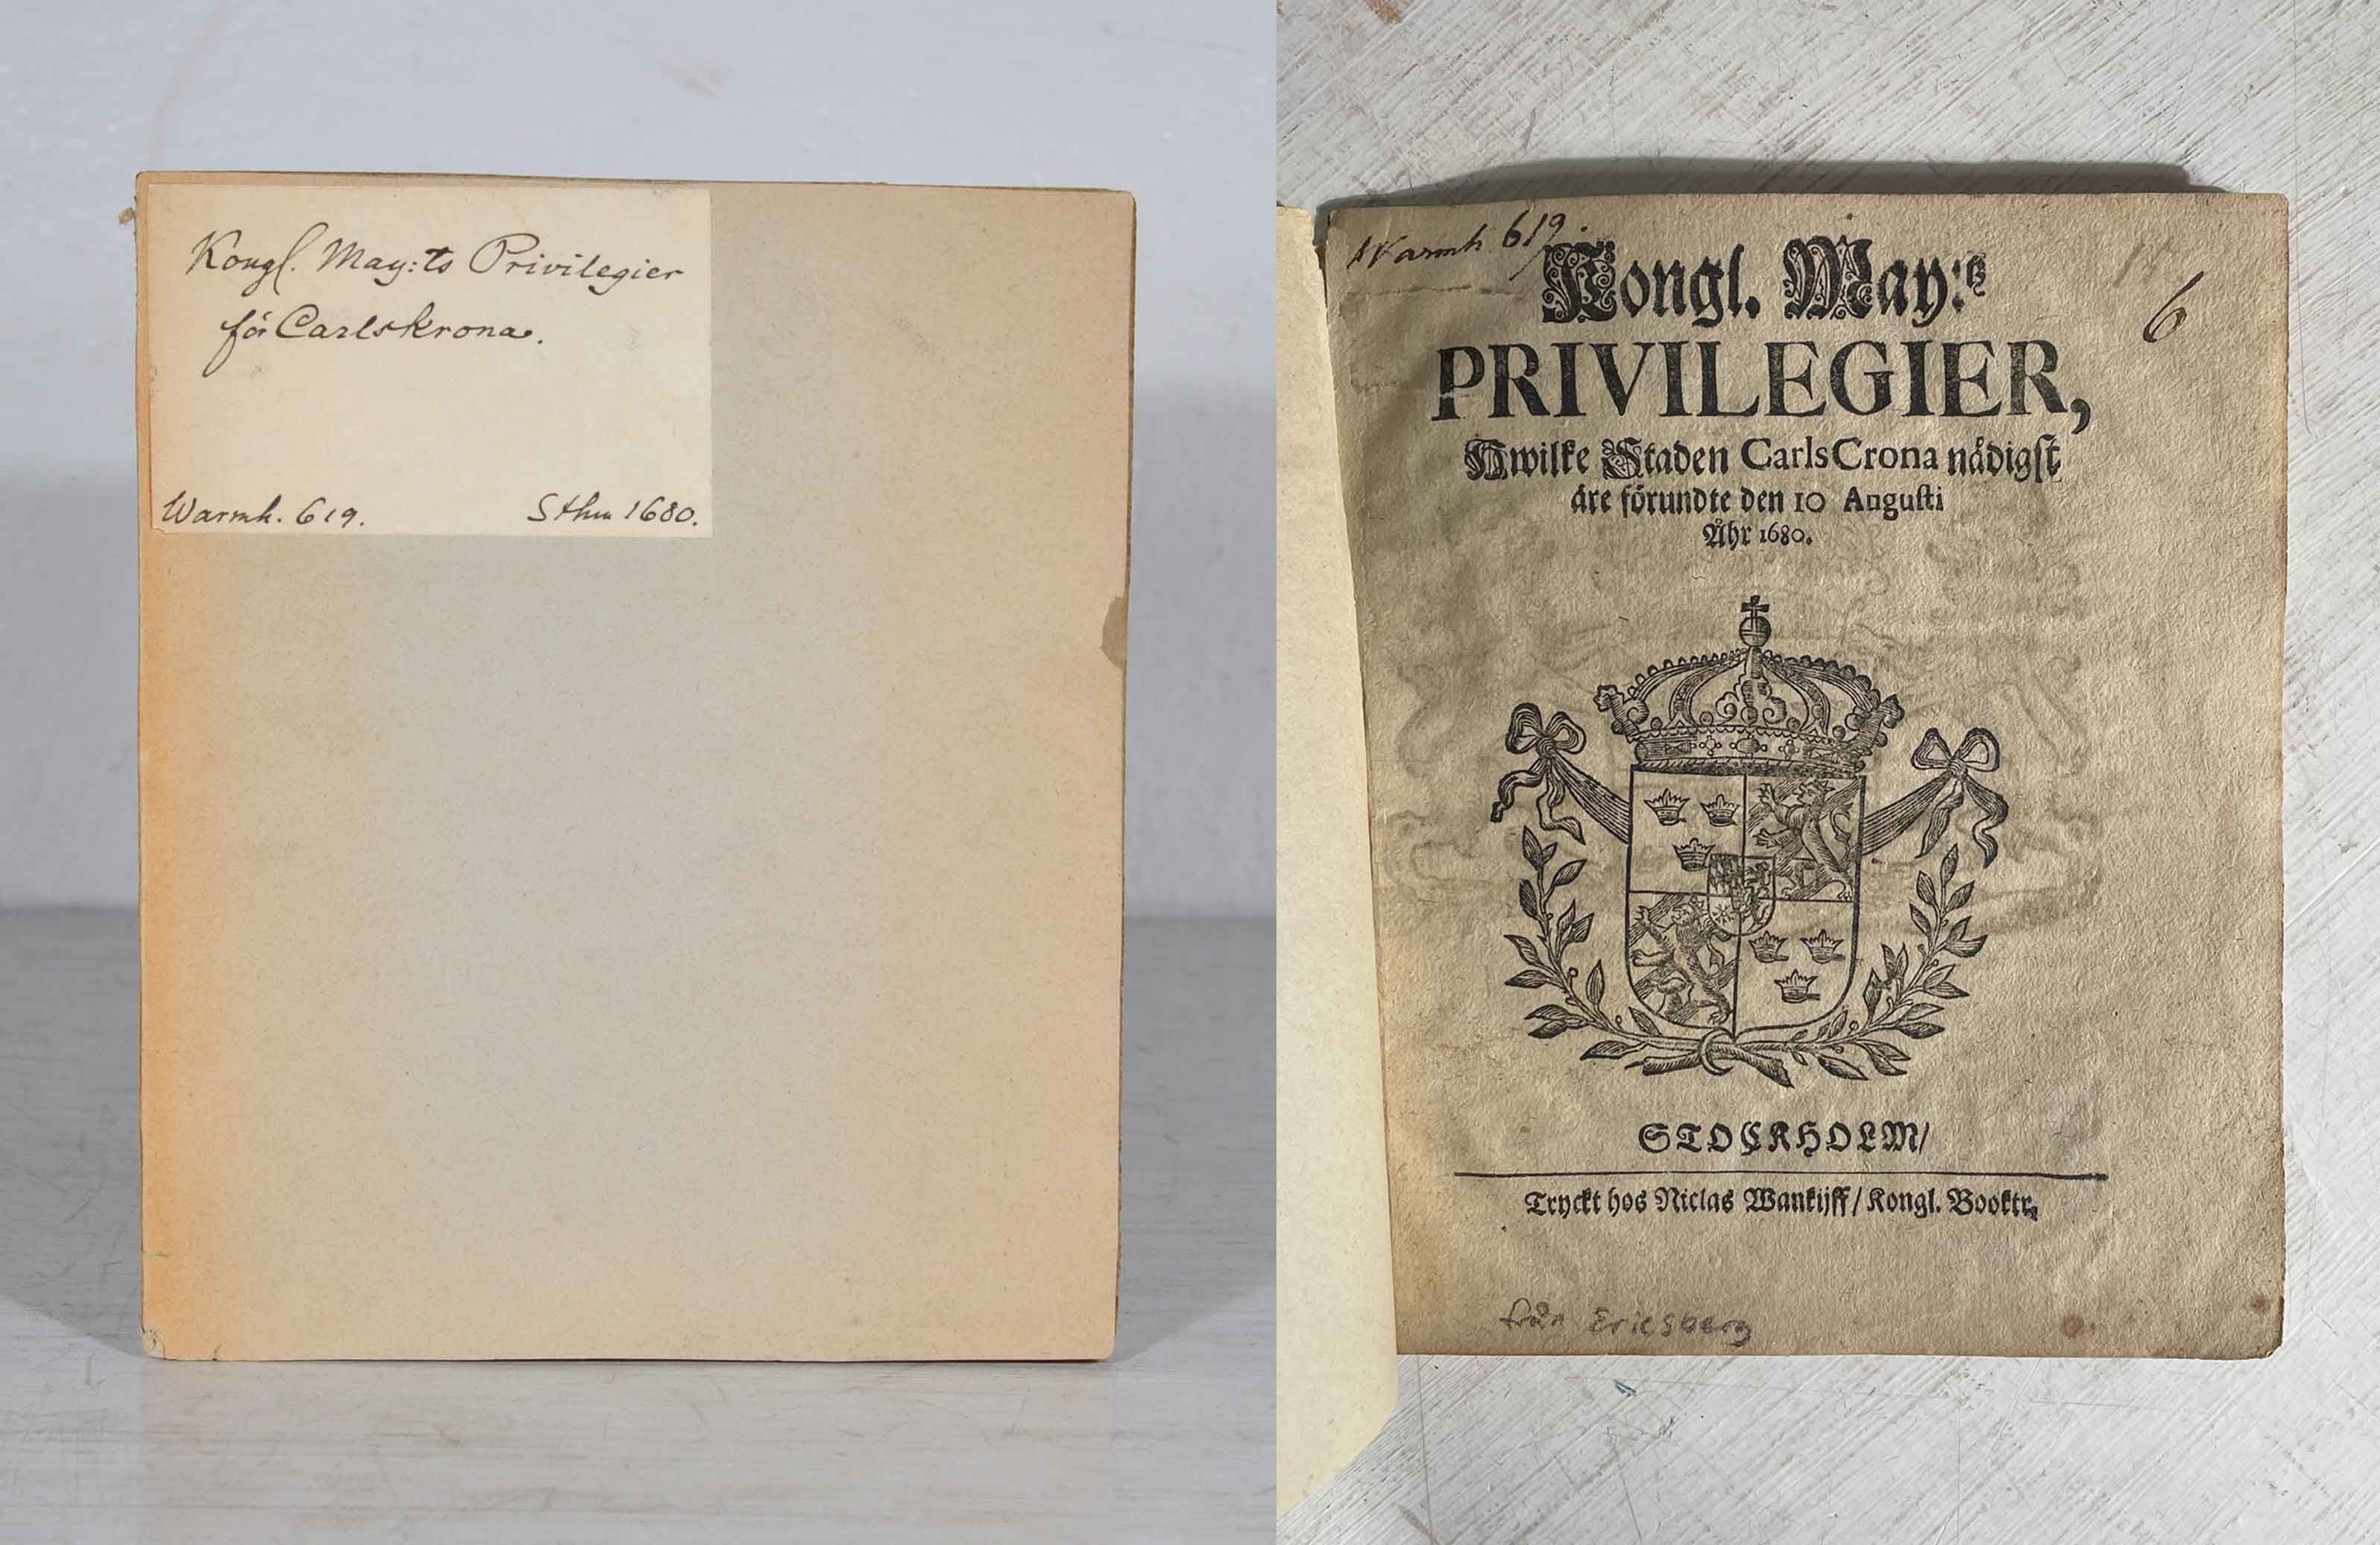 Kongl. May:ts Privilegier
för Carlskrona.
Warmh. 619. Sthm 1680.
Warmh. 619.
6
Kongl. May:tz
PRIVILEGIER,
Hwilke Staden CarlsCrona nådigst
äre förundte den 10 Augusti
Åhr 1680.
STOCKHOLM/
Tryckt hos Niclas Wankijff/ Kongl. Booktr.
från Ericsberg